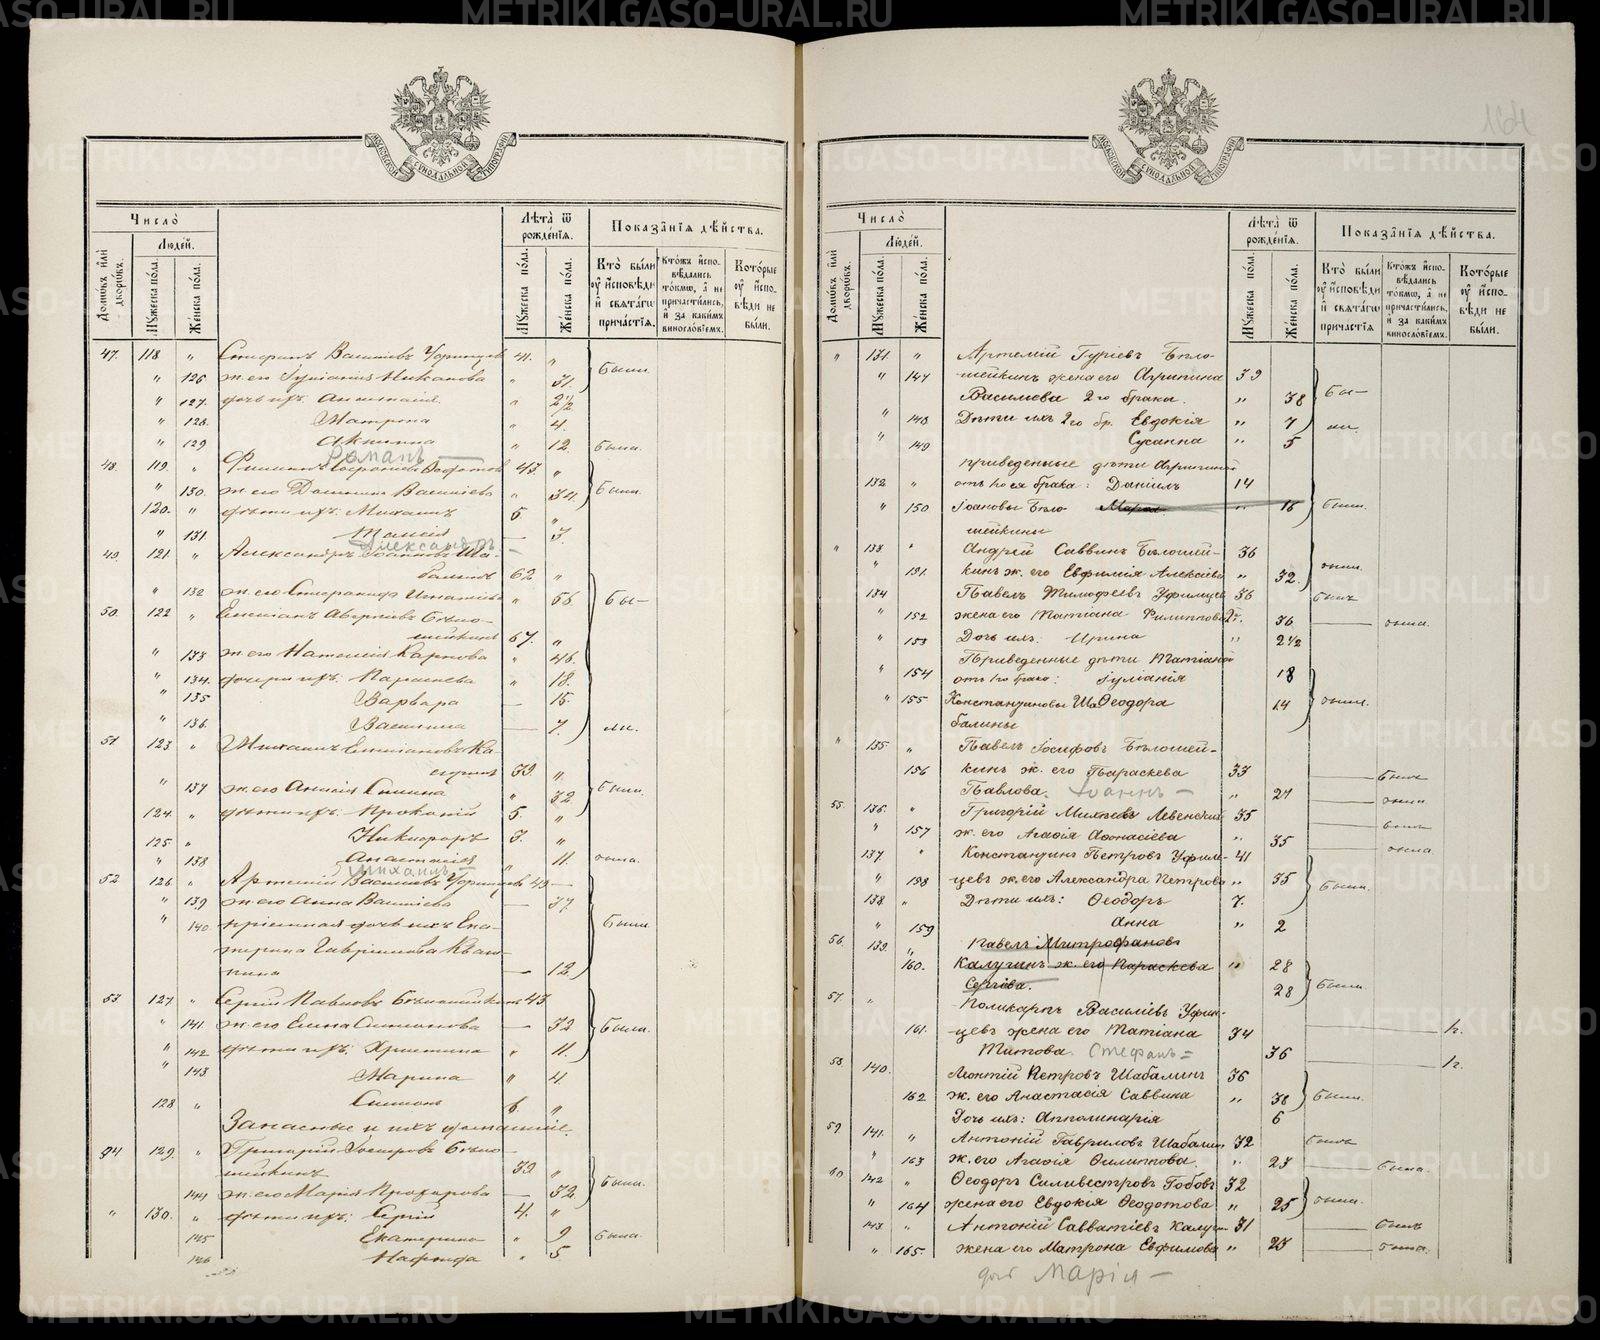 METRIKI.GASO-URAL.RU
МОСКОВСКОЙ СѴНОДАЛЬНОЙ ТИПОГРАФІИ
Число̀
Людей.
Лѣта̀ ѿ рожде́нїѧ.
Показа̑нїѧ дѣ́йства.
Домѡ́въ и҆лѝ дворѡ́въ.
Мꙋ́жеска по́ла.
Же́нска по́ла.
Мꙋ́жеска по́ла.
Же́нска по́ла.
Кто̀ бы́ли ᲂу҆ и҆́сповѣди и҆ свѧта́гѡ прича́стїѧ.
Кто́жъ и҆спо-
вѣ́дались
то́кмѡ, а҆ не
причасти́лись,
и҆ за каки́мъ
винослѡ́вїемъ.
Кото́рые ᲂу҆ и҆́спо-
вѣди не
бы́ли.
47. 118 " Стефанъ Василіевъ 41. "
" 126 ж. его Іуліанія " 31. Были
" 127. дочь ихъ: Анастасія " 2 1/2
" 128. Матрона " 4.
" 129 Акилина " 12. была.
Романъ —
48. 119. " 43. "
" 130. ж. его Василіева " 34. были.
120. " дѣти ихъ: Михаилъ 5. "
" 131 Таисія — 3.
Александръ
49. 121. " Александръ Іоанновъ Ша-
балинъ 62 "
" 132 ж. его Игнатіева " 56. бы—
50. 122 " Аверкіевъ Бѣло-
шейкинъ 67. "
" 133 ж. его Наталія Карпова " 46.
" 134. дочери ихъ: Параскева " 18.
" 135 Варвара — 15.
" 136. Василиса — 7. ли.
51 123 " Михаилъ Ка-
39. "
" 137 ж. его Анисія " 32 были.
124. " дѣти ихъ: Прокопій 5. "
125. " Никифоръ 3. "
" 138 Анастасія " 11. была.
Михаилъ
52 126. " Артемій Василіевъ 43 —
" 139 ж. его Анна Василіева — 37
" 140 пріемная дочь ихъ Ека-
терина Гавріилова были
— 12
53 127 " Сергій Павловъ Бѣлошейкинъ 43
" 141. ж. его Елена — 32 были.
" 142 дѣти ихъ: Христина " 11.
" 143 Марина " 4.
128 " Симеонъ 6. "
Запасные и ихъ домашніе.
54 129. " Григорій Іосифовъ Бѣло-
шейкинъ 39 "
144 ж. его Марія Прохорова — 32. были.
" 130. " дѣти ихъ: Сергій 4. "
145 Екатерина " 9 была.
146 " 5
Число̀
Людей.
Лѣта̀ ѿ рожде́нїѧ.
Показа̑нїѧ дѣ́йства.
Домѡ́въ и҆лѝ дворѡ́въ.
Мꙋ́жеска по́ла.
Же́нска по́ла.
Мꙋ́жеска по́ла.
Же́нска по́ла.
Кто̀ бы́ли ᲂу҆ и҆́сповѣди и҆ свѧта́гѡ прича́стїѧ
Кто́жъ и҆спо-
вѣ́дались
то́кмѡ, а҆ не
причасти́лись,
и҆ за каки́мъ
винослѡ́вїемъ.
Кото́рые ᲂу҆ и҆́спо-
вѣди не
бы́ли.
" 131. " Артемій Гуріевъ Бѣло-
" 147 шейкинъ жена его Агрипина 39
Василіева 2го брака. " 38 бы—
" 148 Дѣти ихъ 2го бр. Евдокія " 7 ли.
" 149 Сусанна " 5
приведенные дѣти Агрипиной
132 " отъ 1го ея брака: Даніилъ 14
" 150 Іоановы Бѣло- Марія " 16 были.
шейкины
" 133 " Андрей Саввинъ Бѣлошей- 36
" 151. кинъ ж. его Евфимія Алексіева " 32. были.
134 Павелъ Тимофеевъ Уфимцевъ 36 былъ
" 152 жена его Татіана Филиппова 36 — была.
" 153 Дочь ихъ: Ирина " 2 1/2
Приведенные дѣти Татіаной
" 154 отъ 1го брака: Іуліанія 18
" 155 Константиновы Ша- Ѳеодора 14 были.
балины
" 135 " Павелъ Іосифовъ Бѣлошей-
156 кинъ ж. его Параскева 33 — былъ
Павлова. Іоаннъ — " 27 — была
55. 136. " Григорій Левенскихъ 35 — былъ
" 157 ж. его Агафія Афанасіева " 35 — была
137 " Константинъ Петровъ Уфим- 41
" 158 цевъ ж. его Александра Петрова " 35 были.
138 " Дѣти ихъ: Ѳеодоръ 7.
" 159 Анна " 2
56. 139. " Павелъ Митрофановъ
160. Калугинъ ж. его Параскева " 28
Сергіева. 28 были.
57. " Поликарпъ Василіевъ Уфим-
161. цевъ жена его Татіана 34 — 1г.
Титова. Стефанъ = 36 — 1г.
58 140. Леонтій Петровъ Шабалинъ 36
162 ж. его Анастасія Саввина " 38 были.
Дочь ихъ: Апполинарія 6
59 141. " Антоній Гавриловъ Шабалинъ 32 былъ
" 163 ж. его Агафія Филиппова " 23 — была.
60 142 " Ѳеодоръ Силивестровъ Гобовъ 32
" 164 жена его Евдокія Ѳеодотова " 25 были.
143 " Антоній Савватіевъ Калуги- 31 — былъ
" 165. жена его Матрона Евфимова " 23 — была.
Марія —